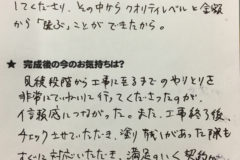 してくださり、その中からクオリティレベルと金額
から"選ぶ"ことができたから。
★ 完成後の今のお気持ちは?
見積段階から工事に至るまでのやりとりを
非常にていねいに行ってくださったのが、
信頼感につながった。また、工事終了後、
チェックさせていただき、塗り残しがあった際も
すぐに対応いただき、満足のいく契約が